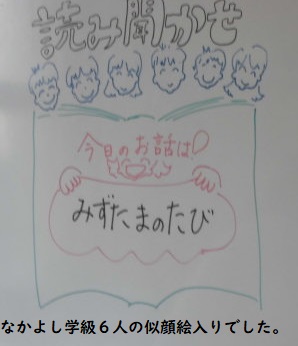 読み聞かせ
今日のお話は
みずたまのたび
なかよし学級６人の似顔絵入りでした。